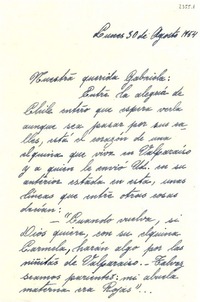 Lunes 30 de Agosto 1954
Nuestra querida Gabriela:
Entre la alegría de
Chile entero que espera verla
aunque sea pasar por sus ca-
lles, está el corazón de una
alguina que vive en Valparaíso
y a quien le envió Ud. en su
anterior estada en esta, unas
líneas que entre otras cosas
decían:
"Cuando vuelva, si
Dios quiere, con su alguina
Carmela, harán algo por las
niñitas de Valparaíso. - Talvez
seamos parientes: mi abuela
materna era Rojas"...